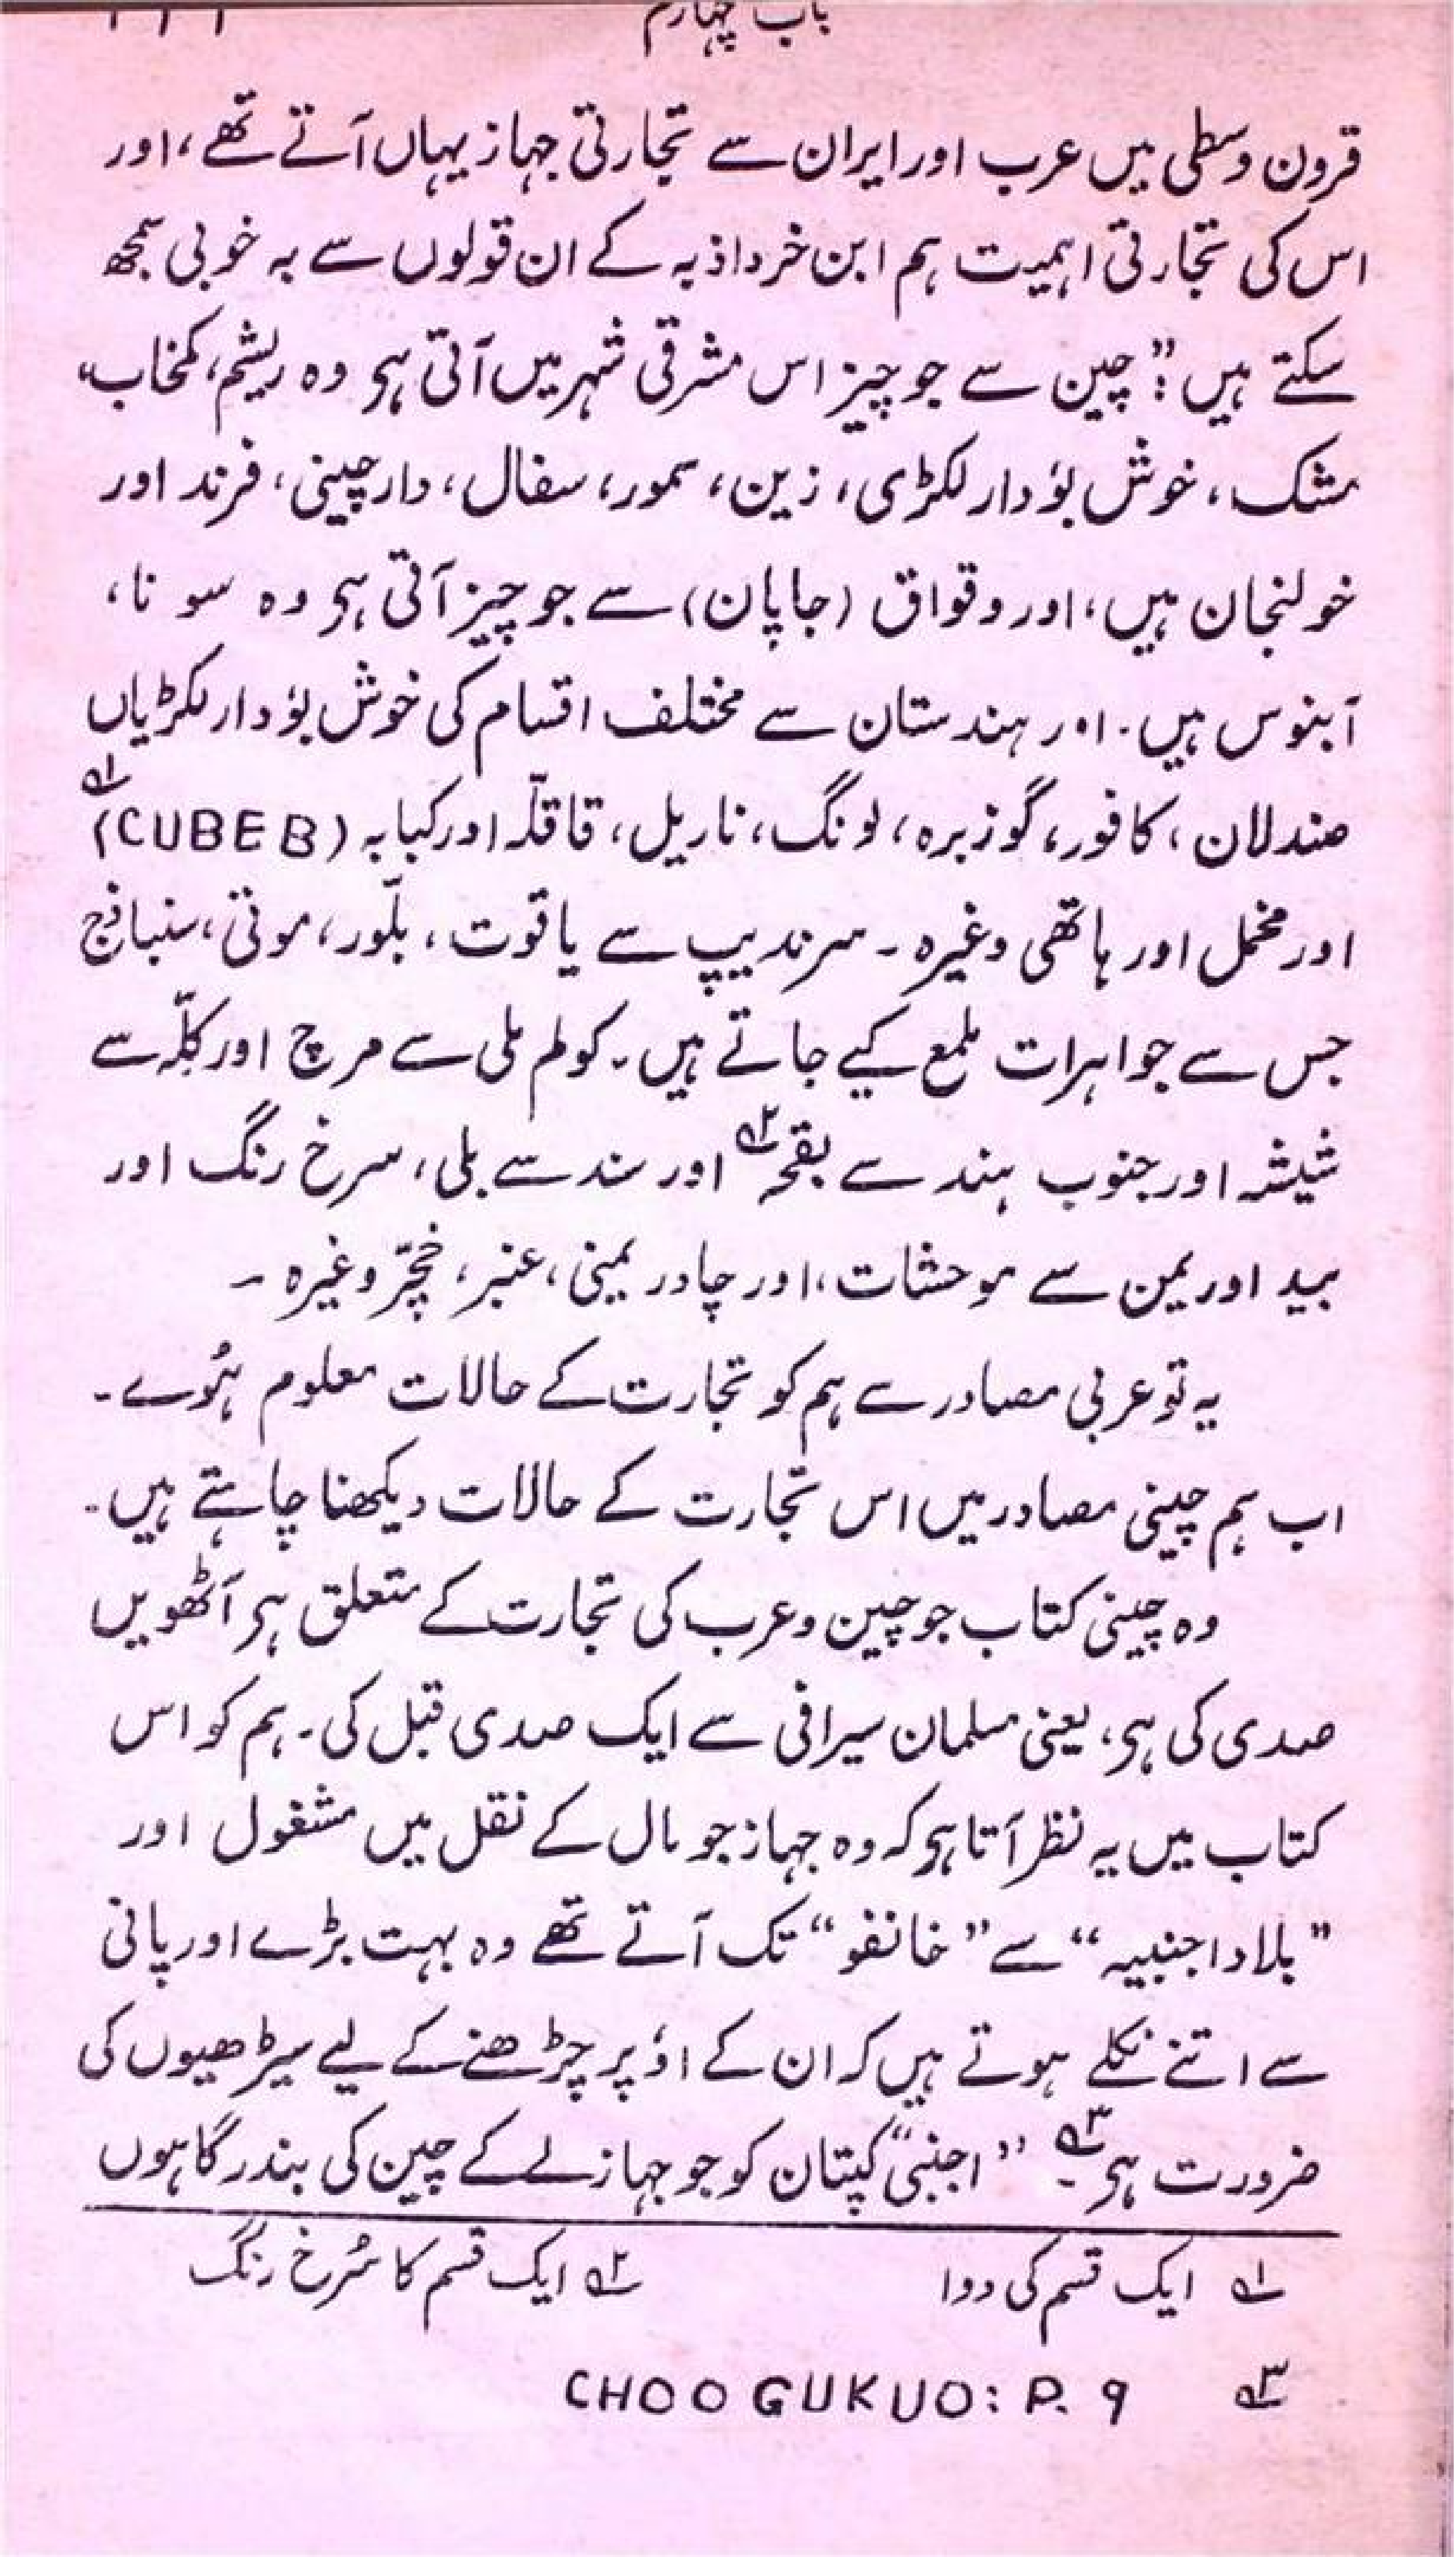 باب چہارم
قرون وسطی میں عرب اور ایران سے تجارتی جہاز یہاں آتے تھے، اور
اس کی تجارتی اہمیت ہم ابن خرداذبہ کے ان قولوں سے بہ خوبی سمجھ
سکتے ہیں: "چین سے جو چیز اس مشرقی شہر میں آتی ہی وہ ریشم، کمخاب،
مشک، خوش بوٗدار لکڑی، زین، سمور، سفال، دارچینی، فرند اور
خولنجان ہیں، اور وقواق (جاپان) سے جو چیز آتی ہی وہ سونا،
آبنوس ہیں۔ اور ہندستان سے مختلف اقسام کی خوش بوٗدار لکڑیاں
صندلان، کافور، گوزبرہ، لونگ، ناریل، قاقلّہ اور کبابہ (CUBEB)۱ھ
اور مخمل اور ہاتھی وغیرہ۔ سرندیپ سے یاقوت، بلّور، موتی، سنباذج
جس سے جواہرات ملمع کیے جاتے ہیں۔ کولم ملی سے مرچ اور کلّہ سے
شیشہ اور جنوب ہند سے بقحہ۲ھ اور سند سے بلی، سرخ رنگ اور
بید اور یمن سے موحشات، اور چادر یمینی، عنبر، خچّر وغیرہ ۔
یہ تو عربی مصادر سے ہم کو تجارت کے حالات معلوم ہُوے۔
اب ہم چینی مصادر میں اس تجارت کے حالات دیکھنا چاہتے ہیں۔
وہ چینی کتاب جو چین و عرب کی تجارت کے متعلق ہی آٹھویں
صدی کی ہی، یعنی مسلمان سیرافی سے ایک صدی قبل کی۔ ہم کو اس
کتاب میں یہ نظر آتا ہی کہ وہ جہاز جو مال کے نقل میں مشغول اور
"بلاد اجنبیہ" سے "خانفو" تک آتے تھے وہ بہت بڑے اور پانی
سے اتنے نکلے ہوتے ہیں کہ ان کے اوٗپر چڑھنے کے لیے سیڑھیوں کی
ضرورت ہی۔۳ھ "اجنبی" کپتان کو جو جہاز لے کے چین کی بندرگاہوں
۱ھ ایک قسم کی دوا ۲ھ ایک قسم کا سُرخ رنگ
۳ھ CHOO GUKUO: P. 9